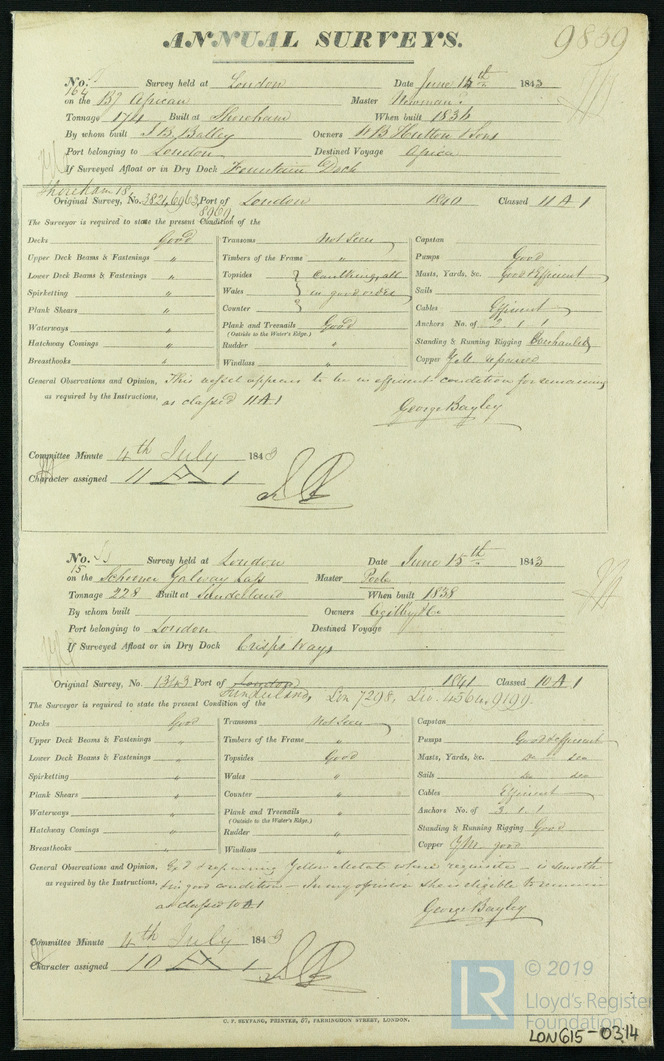 ANNUAL SURVEYS.
9859
No. 164 Survey held at London Date June 15th 1843
on the Bg African Master Newman
Tonnage 174 Built at Shoreham When built 1836
By whom built J B Balley Owners W B Hutton & Sons
Port belonging to London Destined Voyage Africa
If Surveyed Afloat or in Dry Dock Fountain Dock
Shoreham 18,
Original Survey, No. 3824, 6963, Port of London 1840 Classed 11 A 1
8969,
The Surveyor is required to state the present Condition of the
Decks Good Transoms Not Seen Capstan
Upper Deck Beams & Fastenings " Timbers of the Frame " Pumps Good
Lower Deck Beams & Fastenings " Topsides Caulking, all Masts, Yards, &c. Good & Efficient
Spirketting " Wales in good order Sails
Plank Shears " Counter Cables Efficient
Waterways " Plank and Treenails Good Anchors No. of 2. 1. 1
(Outside to the Water's Edge.)
Hatchway Comings " Rudder " Standing & Running Rigging Overhauled
Breasthooks " Windlass " Copper Y.M. repaired
General Observations and Opinion, This vessel appears to be in efficient condition for remaining
as required by the Instructions, as classed 11 A 1
George Bayley
Committee Minute 4th July 1843
Character assigned 11 A 1
No. 15 Survey held at London Date June 15th 1843
on the Schooner Galway Lass Master Poole
Tonnage 228 Built at Sunderland When built 1838
By whom built Owners Ogilby & Co
Port belonging to London Destined Voyage
If Surveyed Afloat or in Dry Dock Crisps Ways
Original Survey, No. 1343 Port of London 1841 Classed 10 A 1
Sunderland, Lon 7298, Liv. 4564, 9199.
The Surveyor is required to state the present Condition of the
Decks Good Transoms Not Seen Capstan
Upper Deck Beams & Fastenings " Timbers of the Frame " Pumps Good & efficient
Lower Deck Beams & Fastenings " Topsides Good Masts, Yards, &c. do do
Spirketting " Wales " Sails do do
Plank Shears " Counter " Cables Efficient
Waterways " Plank and Treenails " Anchors No. of 3. 1. 1
(Outside to the Water's Edge.)
Hatchway Comings " Rudder " Standing & Running Rigging Good
Breasthooks " Windlass " Copper Y.M. good
General Observations and Opinion, & repairing Yellow Metal where requisite – is smooth
as required by the Instructions, & in good condition – In my opinion She is eligible to remain
as classed 10 A 1
George Bayley
Committee Minute 4th July 1843
Character assigned 10 A 1
C. F. SEYFANG, PRINTER, 57, FARRINGDON STREET, LONDON.
LR © 2019
Lloyd's Register
Foundation
LON615-0314